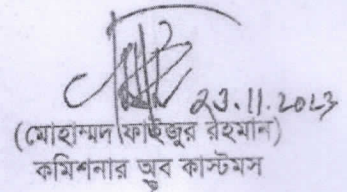 23.11.2023
(মোহাম্মদ ফাইজুর রহমান)
কমিশনার অব কাস্টমস